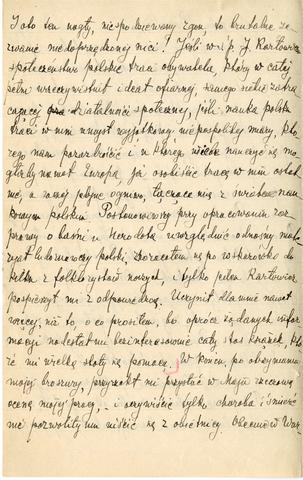 Toto ten nagły, niespodziewany zgon to brutalne ze-
rwanie niedoprzędzonej nici! Jeśli w ś. p. J. Karłowiczu
społeczeństwo polskie traci obywatela, który w całej
pełni urzeczywistnił ideał ofiarnej, samego siebie zatra-
cającej działalności społecznej, jeśli nauka polska
traci w nim umysł wyjątkowy niepospolitej miary, któ-
rego nam pozazdrościć i u którego nauczyć się mo-
głaby nawet Europa, ja osobiście tracę w nim ostat-
nie, a raczej jedyne ogniwo, łączące mię z światem nau-
kowym polskim. Postanowiwszy przy opracowaniu roz-
prawy o baśni u Herodota uwzględnić odnośny mate-
ryał ludoznawczy polski, zwracałem się po wskazówki do
kilku z folklorystów naszych, i tylko jeden Karłowicz
pospieszył mi z odpowiedzią. Uczynił dla mnie nawet
więcej, niż to o co prosiłem, bo oprócz żądanych infor-
macyi nadesłał mi bezinteresownie cały stos książek, któ-
re mi wielką stały się pomocą. W końcu, po otrzymaniu
mojej broszury, przyrzekł mi przysłać w Maju rzeczową
ocenę mojej pracy, i oczywiście tylko choroba i śmierć
nie pozwoliły mu uiścić się z obietnicy. Obecnie w War-